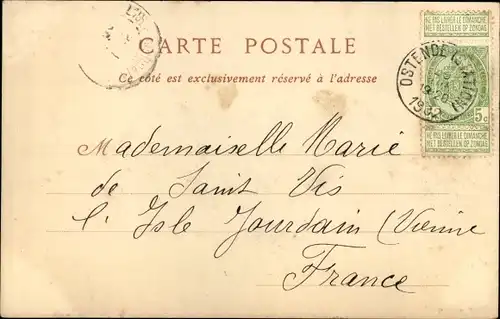 NE PAS LIVRER LE DIMANCHE
NIET BESTELLEN OP ZONDAG
CARTE POSTALE
Ce côté est exclusivement réservé à l'adresse
OSTENDE
1902
5c
NE PAS LIVRER LE DIMANCHE
NIET BESTELLEN OP ZONDAG
Mademoiselle Marie
de Saint Vis
l'Isle Jourdain (Vienne
France